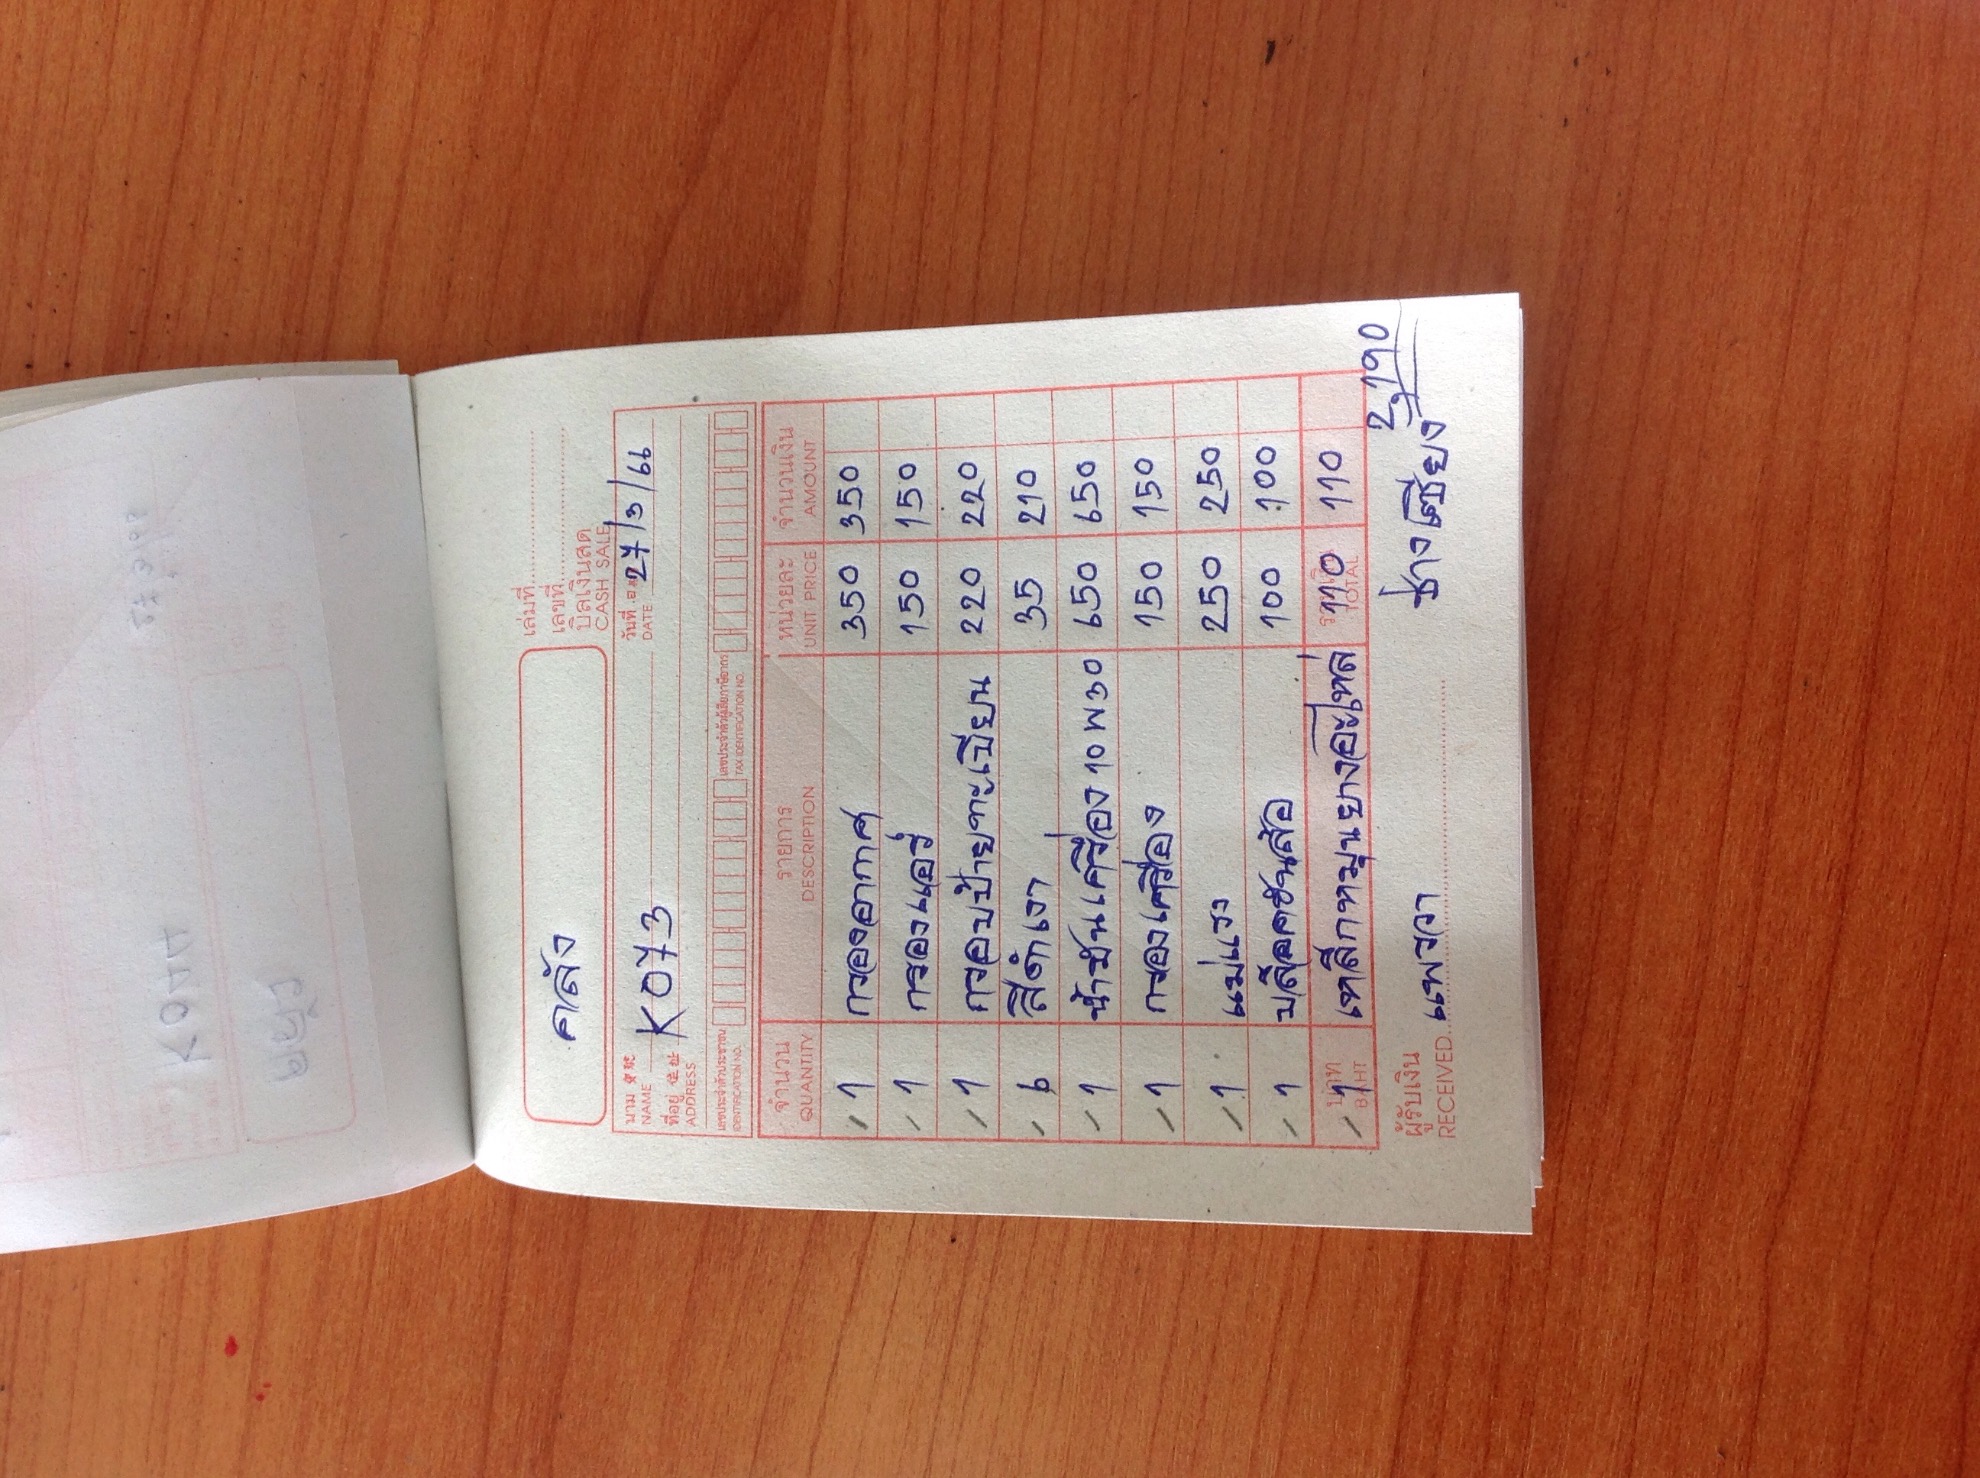 คลัง
เล่มที่
เลขที่
บิลเงินสด
CASH SALE
นาม
NAME K073
วันที่
DATE 27/3/66
ที่อยู่
ADDRESS
เลขประจำตัวประชาชน
IDENTIFICATION NO.
เลขประจำตัวผู้เสียภาษีอากร
TAX IDENTIFICATION NO.
จำนวน รายการ หน่วยละ จำนวนเงิน
QUANTITY DESCRIPTION UNIT PRICE AMOUNT
1 กรองอากาศ 350 350
1 กรองแอร์ 150 150
1 กรอบป้ายทะเบียน 220 220
6 สีดำเงา 35 210
1 น้ำมันเครื่อง 10W30 650 650
1 กรองเครื่อง 150 150
1 แม่แรง 250 250
1 บล็อคขันล้อ 100 100
1 เหล็กหมุนยางอะไหล่ 110 110
บาท
BAHT
TOTAL
2,190
ผู้รับเงิน
RECEIVED แพรวา
ช่างเซียง